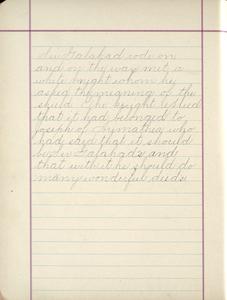 Sir Galahad rode on
and on the way met a
white knight whom he
asked the meaning of the
shield. The knight replied
that it had belonged to
Joseph of Arymathia who
had said that it should
be Sir Galahad's and
that with it he should do
many wonderful deeds.